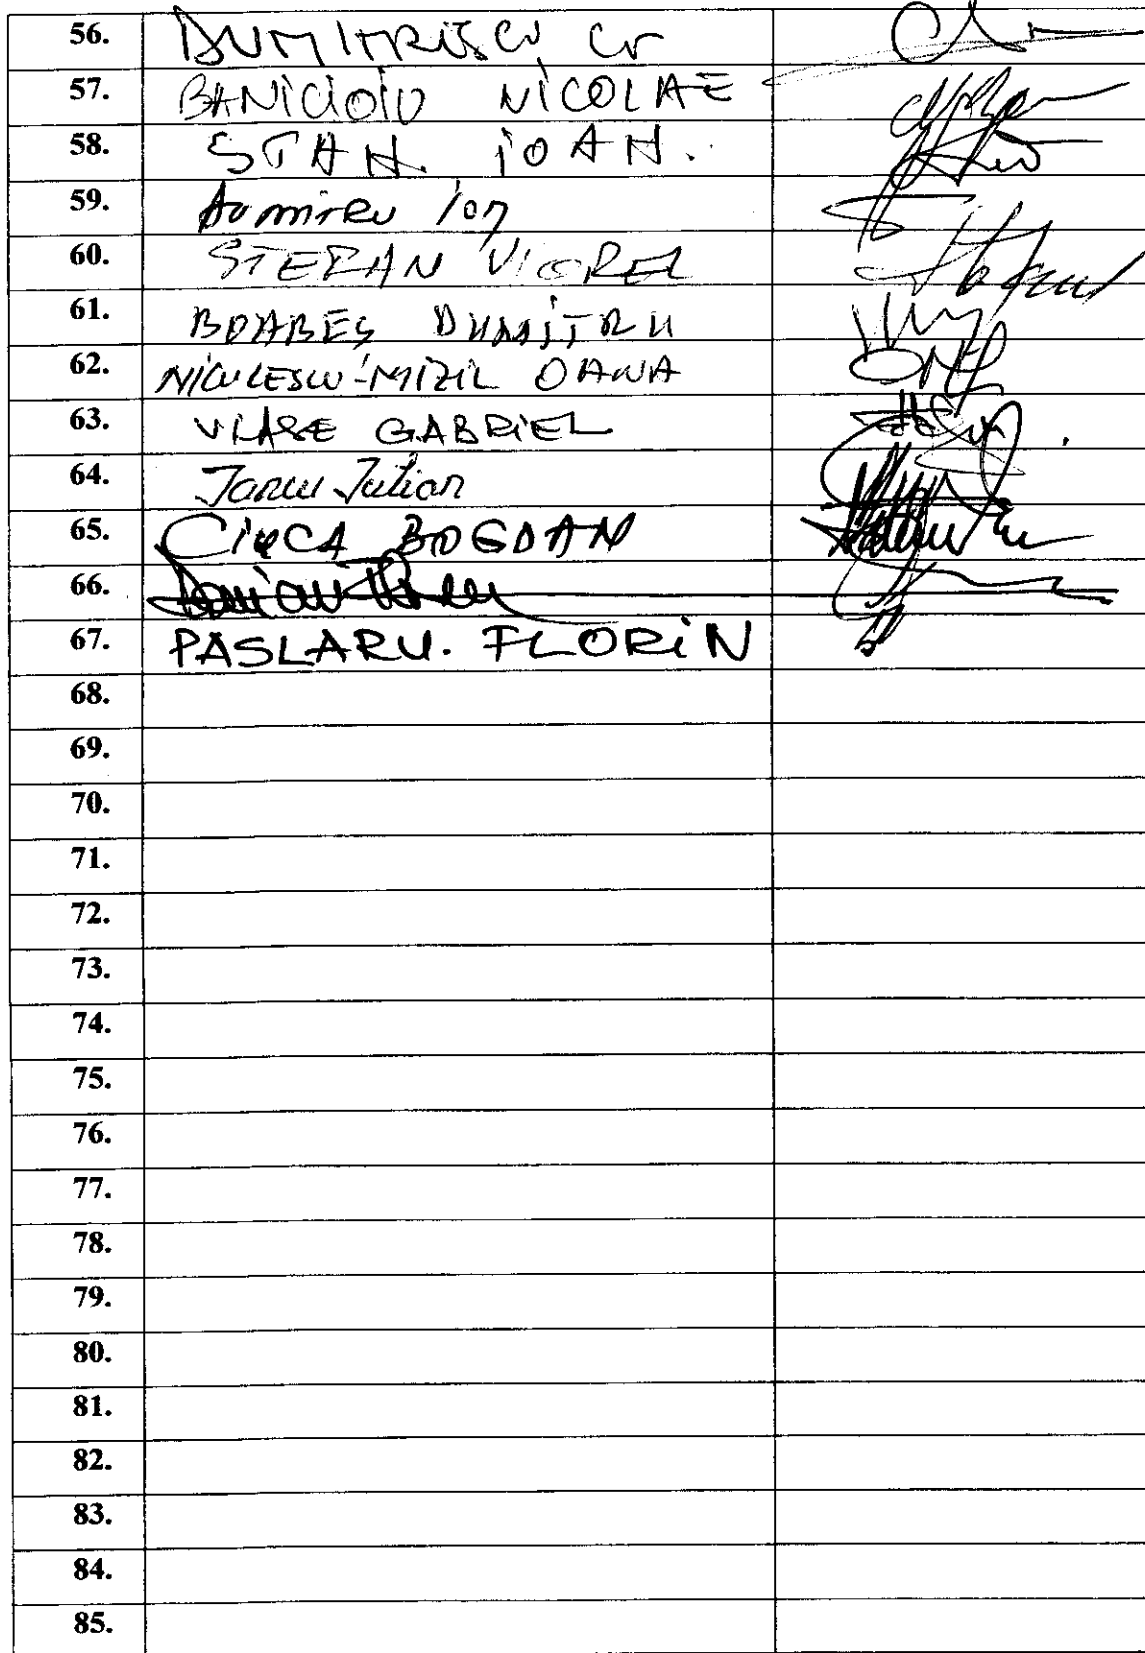 56. DUMITRESCU Cr
57. BANICIOIU NICOLAE
58. STAN. IOAN.
59. Dumitru Ion
60. STEFAN VIOREL
61. BOABEȘ DUMITRU
62. NICULESCU-MIZIL OANA
63. VLASE GABRIEL
64. Iancu Iulian
65. CIUCA BOGDAN
66.
67. PASLARU. FLORIN
68.
69.
70.
71.
72.
73.
74.
75.
76.
77.
78.
79.
80.
81.
82.
83.
84.
85.